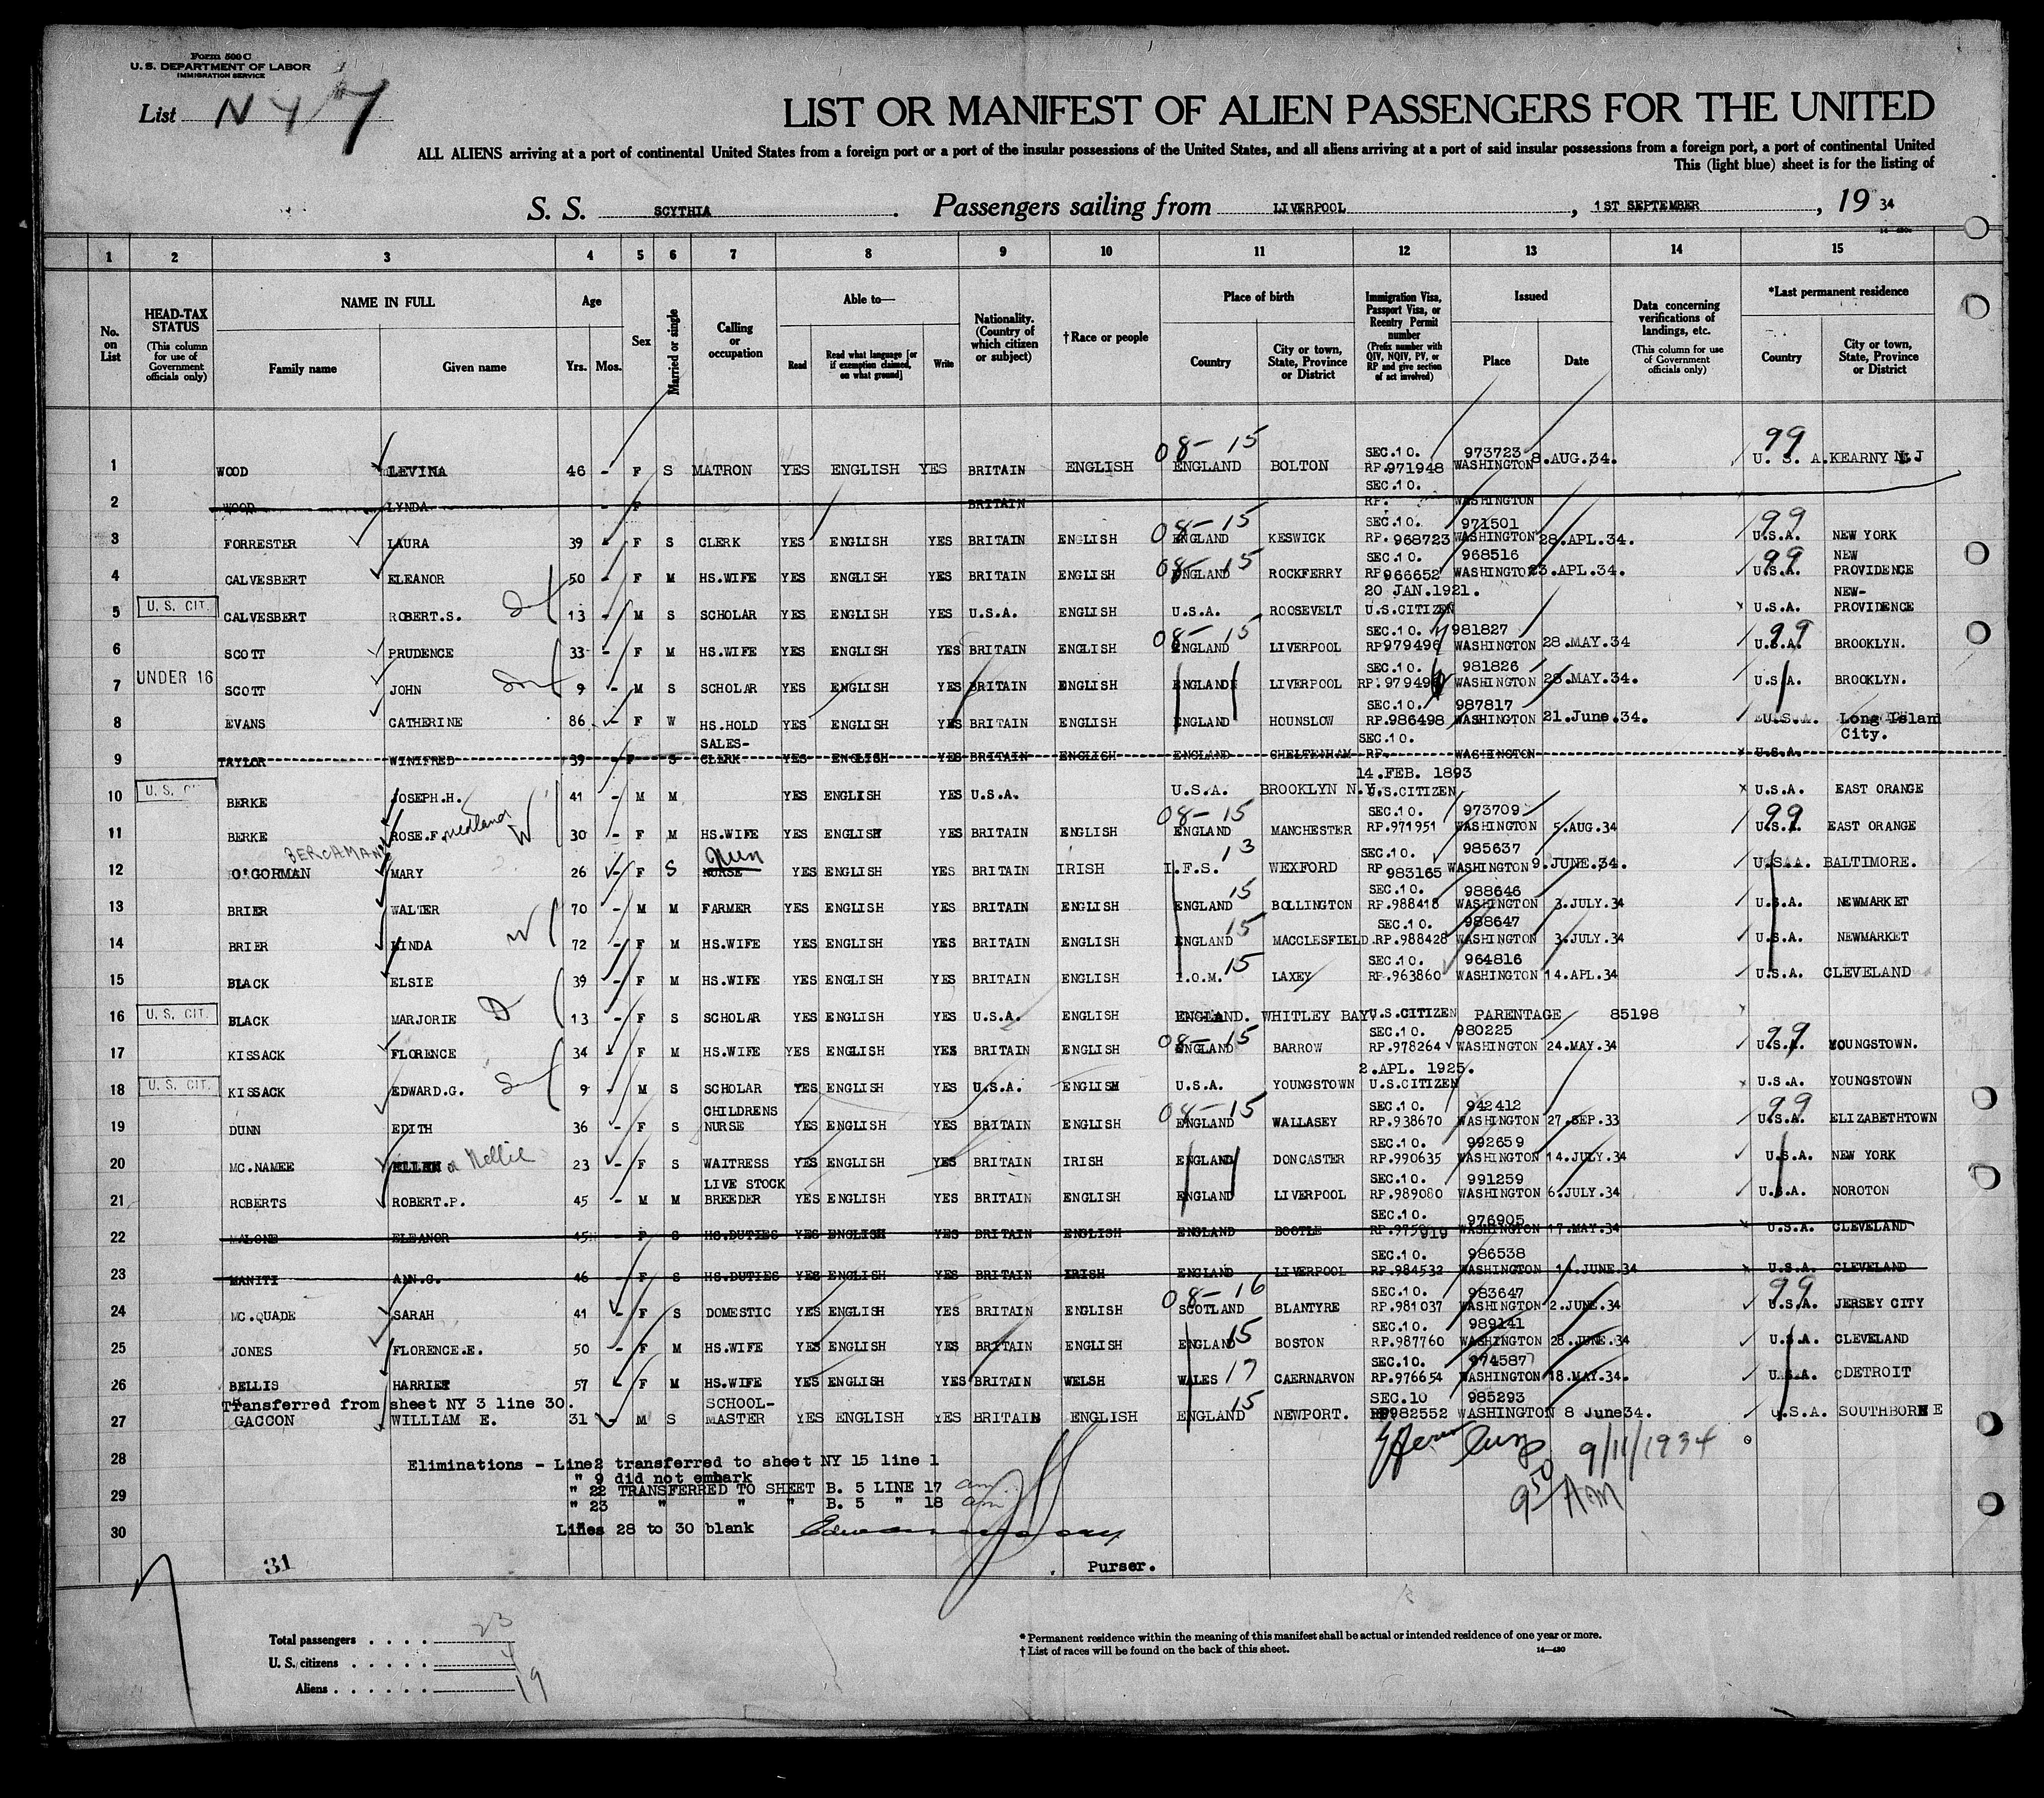 Form 500 C
U. S. DEPARTMENT OF LABOR
IMMIGRATION SERVICE
List N Y 7
LIST OR MANIFEST OF ALIEN PASSENGERS FOR THE UNITED
ALL ALIENS arriving at a port of continental United States from a foreign port or a port of the insular possessions of the United States, and all aliens arriving at a port of said insular possessions from a foreign port, a port of continental United
This (light blue) sheet is for the listing of
S. S. SCYTHIA. Passengers sailing from LIVERPOOL, 1ST SEPTEMBER, 19 34
1 2 3 4 5 6 7 8 9 10 11 12 13 14 15
No. on List
HEAD-TAX STATUS (This column for use of Government officials only)
NAME IN FULL Family name Given name
Age Yrs. Mos.
Sex
Married or single
Calling or occupation
Able to— Read Read what language [or if exemption claimed, on what ground] Write
Nationality. (Country of which citizen or subject)
†Race or people
Place of birth Country City or town, State, Province or District
Immigration Visa, Passport Visa, or Reentry Permit number (Prefix number with QIV, NQIV, PV, or RP and give section of act involved)
Issued Place Date
Data concerning verifications of landings, etc. (This column for use of Government officials only)
*Last permanent residence Country City or town, State, Province or District
1 WOOD LEVINA 46 - F S MATRON YES ENGLISH YES BRITAIN ENGLISH 08-15 ENGLAND BOLTON SEC.10. RP.971948 973723 WASHINGTON 8.AUG.34. 99 U. S. A. KEARNY N.J
2 WOOD LYNDA - F BRITAIN SEC.10. RP. WASHINGTON
3 FORRESTER LAURA 39 - F S CLERK YES ENGLISH YES BRITAIN ENGLISH 08-15 ENGLAND KESWICK SEC.10. RP.968723 971501 WASHINGTON 28.APL.34. 99 U.S.A. NEW YORK
4 CALVESBERT ELEANOR 50 - F M HS.WIFE YES ENGLISH YES BRITAIN ENGLISH 08-15 ENGLAND ROCKFERRY SEC.10. RP966652 968516 WASHINGTON 23.APL.34. 99 U.S.A. NEW PROVIDENCE
5 U. S. CIT. CALVESBERT ROBERT.S. 13 - M S SCHOLAR YES ENGLISH YES U.S.A. ENGLISH U.S.A. ROOSEVELT 20 JAN.1921. U.S.CITIZEN U.S.A. NEW-PROVIDENCE
6 SCOTT PRUDENCE 33 - F M HS.WIFE YES ENGLISH YES BRITAIN ENGLISH 08-15 ENGLAND LIVERPOOL SEC.10. RP979496 981827 WASHINGTON 28.MAY.34 99 U.S.A. BROOKLYN.
7 UNDER 16 SCOTT JOHN Son 9 - M S SCHOLAR YES ENGLISH YES BRITAIN ENGLISH ENGLAND LIVERPOOL SEC.10. 981826 WASHINGTON 28.MAY.34. U.S.A. BROOKLYN.
8 EVANS CATHERINE 86 - F W HS.HOLD YES ENGLISH YES BRITAIN ENGLISH ENGLAND HOUNSLOW SEC.10. RP.986498 987817 WASHINGTON 21.June.34. U.S.A. Long Island City.
9 TAYLOR WINIFRED 39 - F S SALES-CLERK YES ENGLISH YES BRITAIN ENGLISH ENGLAND CHELTENHAM SEC.10. RP. WASHINGTON U.S.A.
10 U. S. CIT BERKE JOSEPH.H. 41 - M M YES ENGLISH YES U.S.A. U.S.A. BROOKLYN N.Y. 14.FEB. 1893 U.S.CITIZEN U.S.A. EAST ORANGE
11 BERKE ROSE.F. W 30 - F M HS.WIFE YES ENGLISH YES BRITAIN ENGLISH 08-15 ENGLAND MANCHESTER SEC.10. RP.971951 973709 WASHINGTON 5.AUG.34 99 U.S.A EAST ORANGE
12 O'GORMAN MARY 26 - F S NURSE Nun YES ENGLISH YES BRITAIN IRISH 13 I.F.S. WEXFORD SEC.10. RP 983165 985637 WASHINGTON 9.JUNE.34. U.S.A. BALTIMORE.
13 BRIER WALTER 70 - M M FARMER YES ENGLISH YES BRITAIN ENGLISH 15 ENGLAND BOLLINGTON SEC.10. RP.988418 988646 WASHINGTON 3.JULY.34 U.S.A. NEWMARKET
14 BRIER LINDA W 72 - F M HS.WIFE YES ENGLISH YES BRITAIN ENGLISH 15 ENGLAND MACCLESFIELD. SEC.10. RP.988428 988647 WASHINGTON 3.JULY.34 U.S.A. NEWMARKET
15 BLACK ELSIE 39 - F M HS.WIFE YES ENGLISH YES BRITAIN ENGLISH 15 I.O.M. LAXEY SEC.10. RP.963860 964816 WASHINGTON 14.APL.34 U.S.A. CLEVELAND
16 U. S. CIT. BLACK MARJORIE D 13 - F S SCHOLAR YES ENGLISH YES U.S.A. ENGLISH ENGLAND. WHITLEY BAY U.S.CITIZEN PARENTAGE 85198
17 KISSACK FLORENCE 34 - F M HS.WIFE YES ENGLISH YES BRITAIN ENGLISH 08-15 ENGLAND BARROW SEC.10. RP.978264 980225 WASHINGTON 24.MAY.34 99 U.S.A YOUNGSTOWN.
18 U. S. CIT. KISSACK EDWARD.G. 9 M S SCHOLAR YES ENGLISH YES U.S.A. ENGLISH U.S.A. YOUNGSTOWN 2.APL. 1925. U.S.CITIZEN U.S.A. YOUNGSTOWN
19 DUNN EDITH 36 - F S CHILDRENS NURSE YES ENGLISH YES BRITAIN ENGLISH 08-15 ENGLAND WALLASEY SEC.10. RP.938670 942412 WASHINGTON 27.SEP.33 99 U.S.A. ELIZABETHTOWN
20 MC.NAMEE ELLEN or Nellie 23 - F S WAITRESS YES ENGLISH YES BRITAIN IRISH ENGLAND DONCASTER SEC.10. RP.990635 992659 WASHINGTON 14.JULY.34 U.S.A. NEW YORK
21 ROBERTS ROBERT.P. 45 - M M LIVE STOCK BREEDER YES ENGLISH YES BRITAIN ENGLISH ENGLAND LIVERPOOL SEC.10. RP.989080 991259 WASHINGTON 6.JULY.34 U.S.A. NOROTON
22 MALONE ELEANOR 45 - F S HS.DUTIES YES ENGLISH YES BRITAIN ENGLISH ENGLAND BOOTLE SEC.10. RP.975919 976905 WASHINGTON 17.MAY.34 U.S.A. CLEVELAND
23 MANITI ANN.G. 46 - F S HS.DUTIES YES ENGLISH YES BRITAIN IRISH ENGLAND LIVERPOOL SEC.10. RP.984532 986538 WASHINGTON 14.JUNE.34 U.S.A. CLEVELAND
24 MC.QUADE SARAH 41 - F S DOMESTIC YES ENGLISH YES BRITAIN ENGLISH 08-16 SCOTLAND BLANTYRE SEC.10. RP.981037 983647 WASHINGTON 2.JUNE.34 99 U.S.A. JERSEY CITY
25 JONES FLORENCE.E. 50 - F M HS.WIFE YES ENGLISH YES BRITAIN ENGLISH 15 ENGLAND BOSTON SEC.10. RP.987760 989141 WASHINGTON 28.JUNE.34 U.S.A. CLEVELAND
26 BELLIS HARRIET 57 - F M HS.WIFE YES ENGLISH YES BRITAIN WELSH 17 WALES CAERNARVON SEC.10. RP.976654 974587 WASHINGTON 18.MAY.34. U.S.A. DETROIT
Transferred from sheet NY 3 line 30.
27 GACCON WILLIAM E. 31 - M S SCHOOL-MASTER YES ENGLISH YES BRITAIN ENGLISH 15 ENGLAND NEWPORT. SEC.10 RP982552 985293 WASHINGTON 8 June34. U.S.A. SOUTHBORNE
28 Eliminations - Line2 transferred to sheet NY 15 line 1
" 9 did not embark
29 " 22 TRANSFERRED TO SHEET B. 5 LINE 17
" 23 " " " B. 5 " 18
30 Lines 28 to 30 blank
9/11/1934
9 50 AM
Purser.
31
Total passengers . . . . 23
U. S. citizens . . . . . 4
Aliens . . . . . . 19
* Permanent residence within the meaning of this manifest shall be actual or intended residence of one year or more.
† List of races will be found on the back of this sheet. 14—480